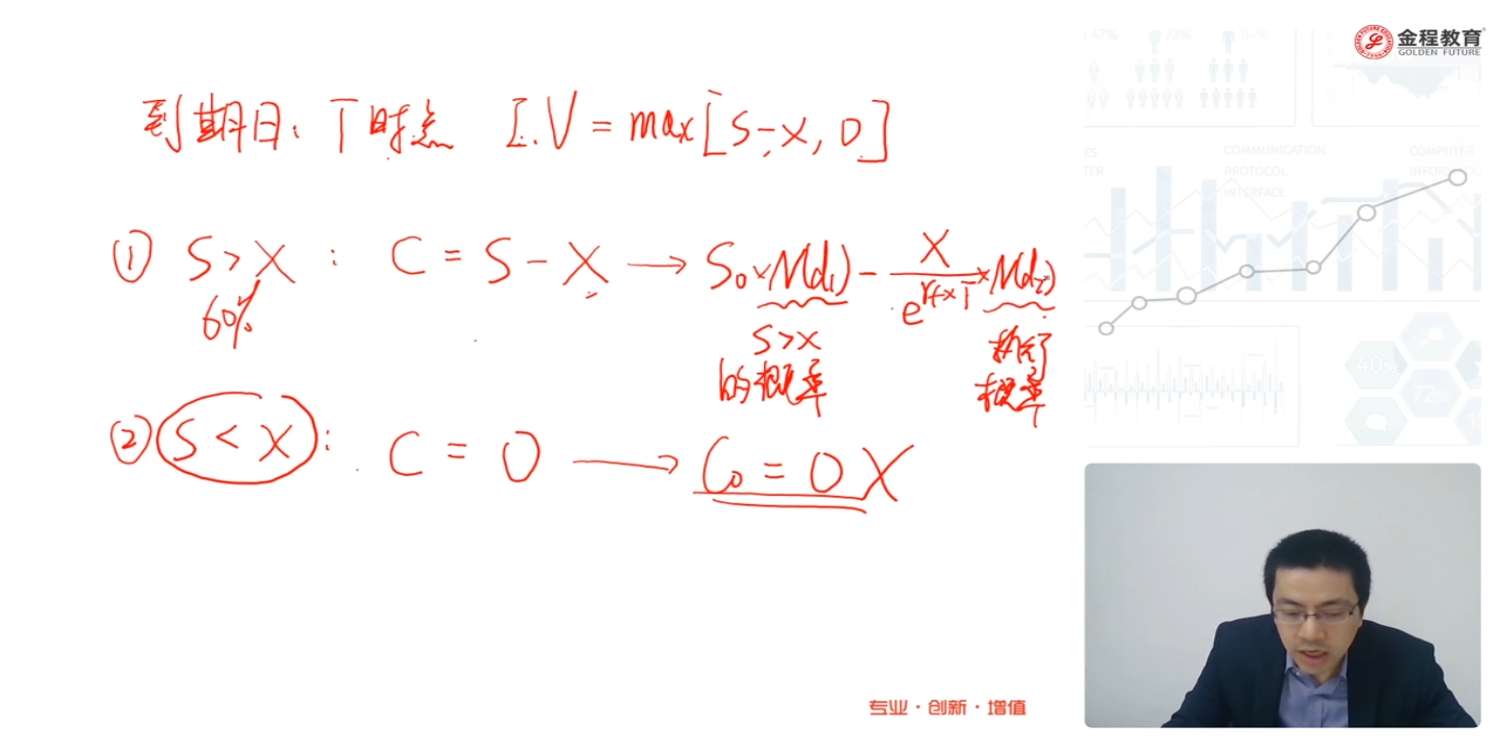 金程教育
GOLDEN FUTURE
到期日: T时点 I.V = max[S-X, 0]
① S>X : C = S - X → S₀×N(d₁) - X/e^(rf×T) × N(d₂)
60%
S>X
的概率
执行
概率
② S<X : C = 0 → C₀ = 0 X
COMMUNICATION
PROTOCOL
INTERFACE
COMPUTER
40%
72%
专业·创新·增值